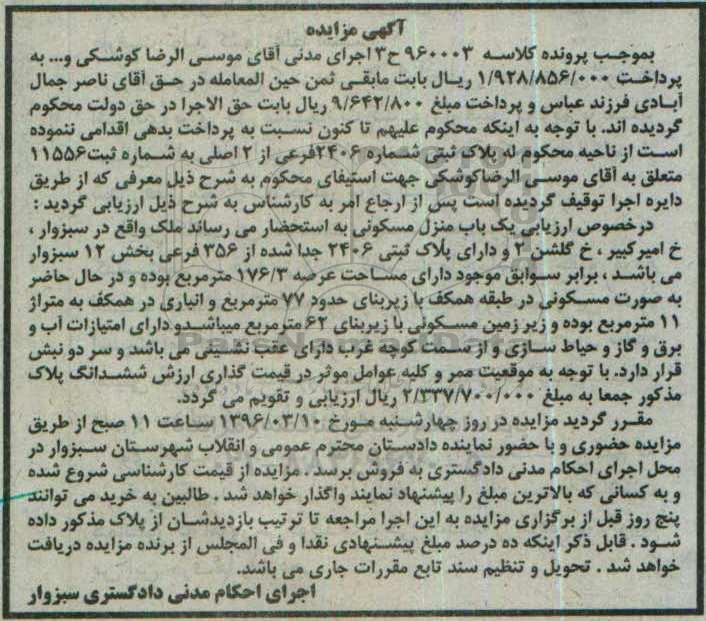 آگهی مزایده
بموجب پرونده کلاسه ۹۶۰۰۰۳ ح۳ اجرای مدنی آقای موسی الرضا کوشکی و... به
پرداخت ۱/۹۲۸/۸۵۶/۰۰۰ ریال بابت مابقی ثمن حین المعامله در حق آقای ناصر جمال
آبادی فرزند عباس و پرداخت مبلغ ۹/۶۴۲/۸۰۰ ریال بابت حق الاجرا در حق دولت محکوم
گردیده اند. با توجه به اینکه محکوم علیهم تا کنون نسبت به پرداخت بدهی اقدامی ننموده
است از ناحیه محکوم له پلاک ثبتی شماره ۲۴۰۶فرعی از ۲ اصلی به شماره ثبت۱۱۵۵۶
متعلق به آقای موسی الرضاکوشکی جهت استیفای محکوم به شرح ذیل معرفی که از طریق
دایره اجرا توقیف گردیده است پس از ارجاع امر به کارشناس به شرح ذیل ارزیابی گردید :
درخصوص ارزیابی یک باب منزل مسکونی به استحضار می رساند ملک واقع در سبزوار ،
خ امیرکبیر ، خ گلشن ۲ و دارای پلاک ثبتی ۲۴۰۶ جدا شده از ۳۵۶ فرعی بخش ۱۲ سبزوار
می باشد ، برابر سوابق موجود دارای مساحت عرصه ۱۷۶/۳ مترمربع بوده و در حال حاضر
به صورت مسکونی در طبقه همکف با زیربنای حدود ۷۷ مترمربع و انباری در همکف به متراژ
۱۱ مترمربع بوده و زیر زمین مسکونی با زیربنای ۶۲ مترمربع میباشدو دارای امتیازات آب و
برق و گاز و حیاط سازی و از سمت کوچه غرب دارای عقب نشینی می باشد و سر دو نبش
قرار دارد. با توجه به موقعیت ممر و کلیه عوامل موثر در قیمت گذاری ارزش ششدانگ پلاک
مذکور جمعا به مبلغ ۲/۳۳۷/۷۰۰/۰۰۰ ریال ارزیابی و تقویم می گردد.
مقرر گردید مزایده در روز چهارشنبه مورخ ۱۳۹۶/۰۳/۱۰ ساعت ۱۱ صبح از طریق
مزایده حضوری و با حضور نماینده دادستان محترم عمومی و انقلاب شهرستان سبزوار در
محل اجرای احکام مدنی دادگستری به فروش برسد. مزایده از قیمت کارشناسی شروع شده
و به کسانی که بالاترین مبلغ را پیشنهاد نمایند واگذار خواهد شد . طالبین به خرید می توانند
پنج روز قبل از برگزاری مزایده به این اجرا مراجعه تا ترتیب بازدیدشان از پلاک مذکور داده
شود . قابل ذکر اینکه ده درصد مبلغ پیشنهادی نقدا و فی المجلس از برنده مزایده دریافت
خواهد شد . تحویل و تنظیم سند تابع مقررات جاری می باشد.
اجرای احکام مدنی دادگستری سبزوار